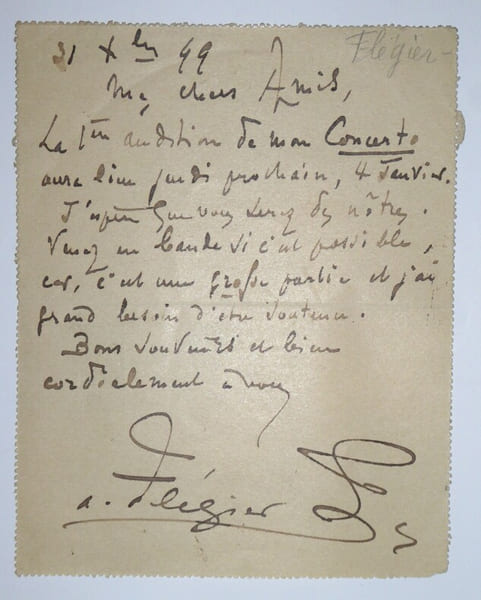 31 Xbre 99
Flégier
Mes chers Amis,
La 1ère audition de mon Concerto
aura lieu jeudi prochain, 4 Janvier.
J'espère que vous serez des nôtres.
Venez en bande si c'est possible,
car, c'est une grosse partie et j'ai
grand besoin d'être soutenu.
Bons souvenirs et bien
cordialement à vous
a. Flégier